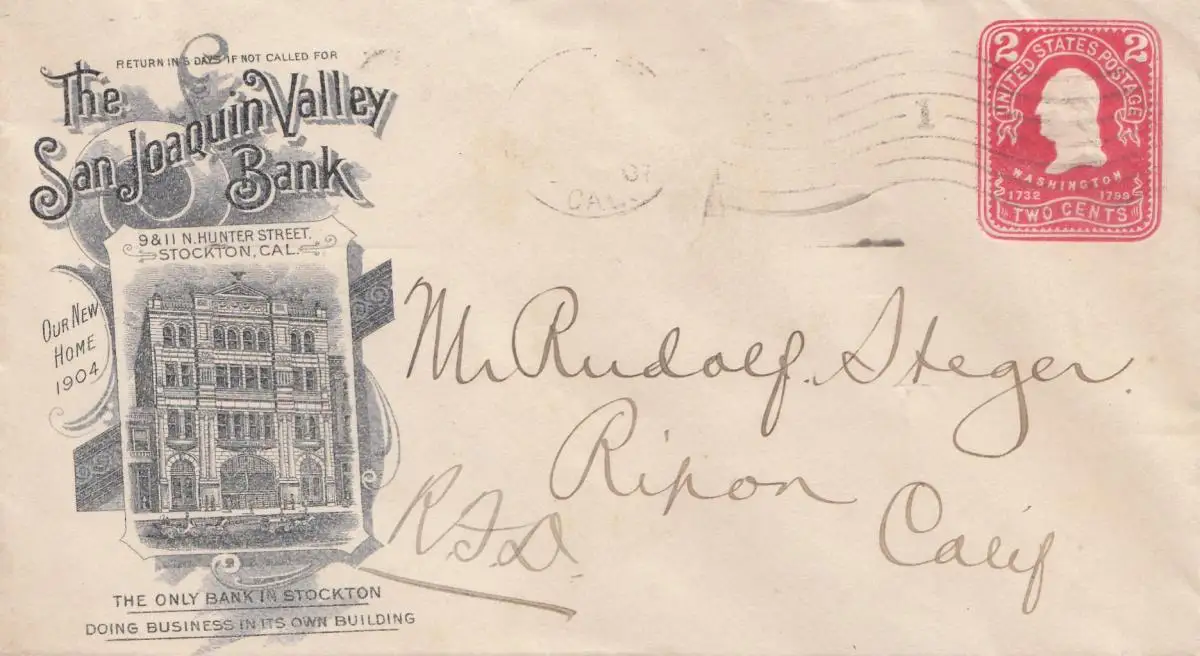 RETURN IN 5 DAYS IF NOT CALLED FOR
The
San Joaquin Valley
Bank
9 & 11 N. HUNTER STREET.
STOCKTON, CAL.
OUR NEW
HOME
1904
THE ONLY BANK IN STOCKTON
DOING BUSINESS IN ITS OWN BUILDING
07
CAL.
1
2 2
UNITED STATES POSTAGE
WASHINGTON
1732 1799
TWO CENTS
Mr Rudolf. Steger.
Ripon
R.F.D.
Calif